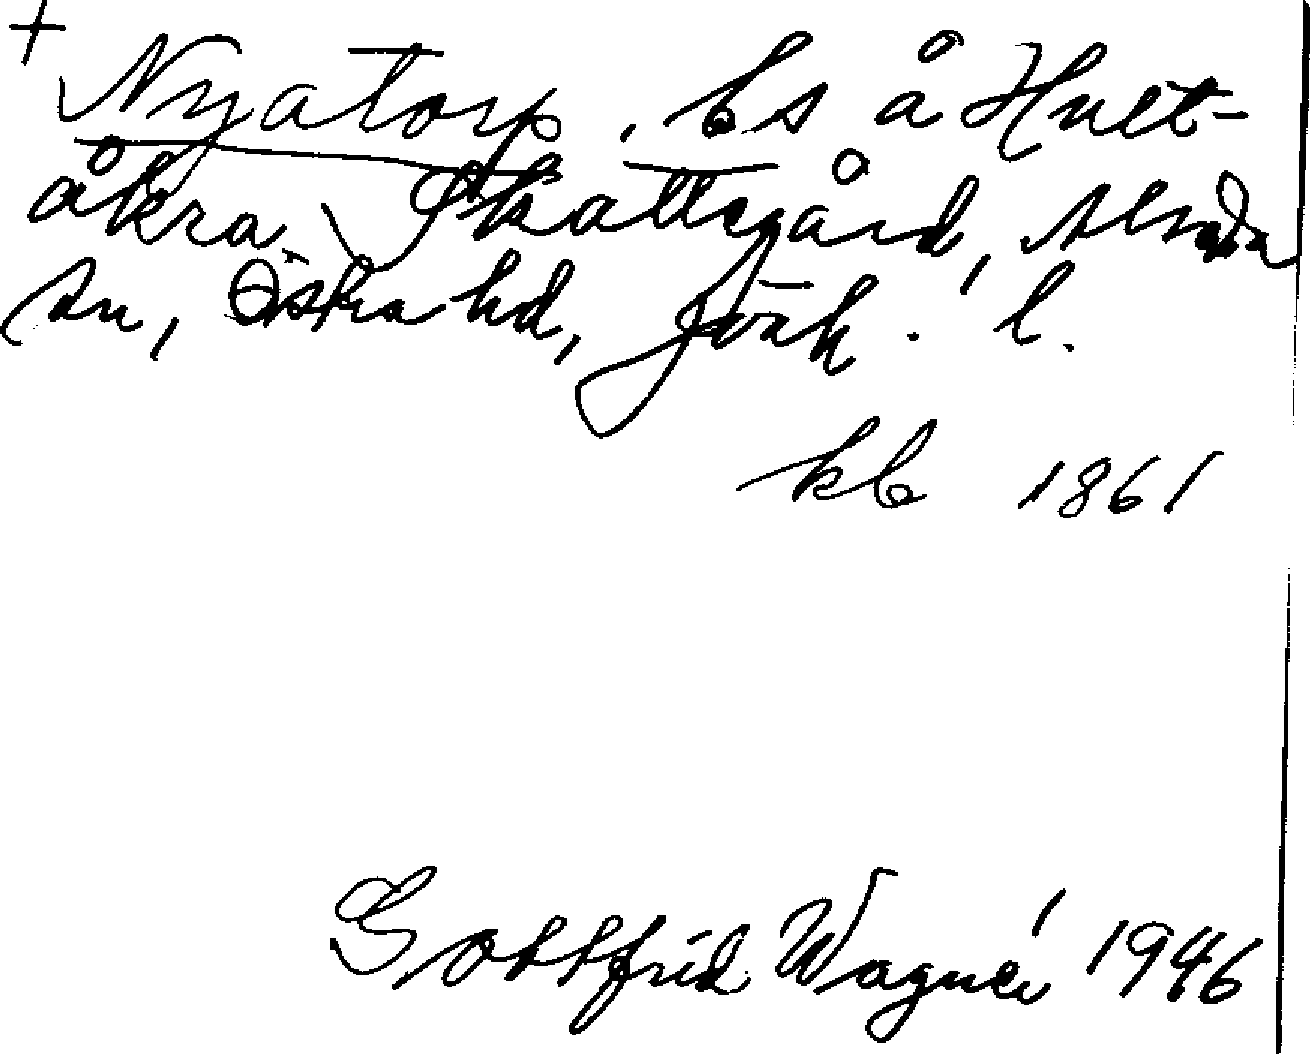 +
Nyatorp, bs å Hvet-
åkra Skattegård, Alseda
sn, Östra hd, Jönk. l.
kb 1861
Gottfrid Wagnér 1946